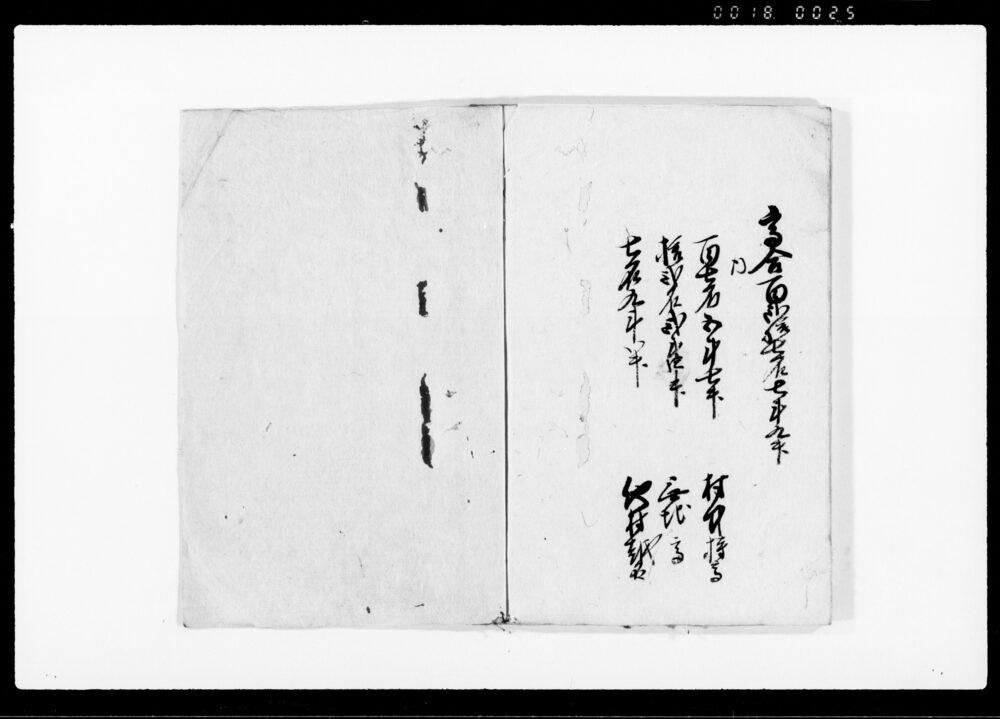 0018 0025
高合百弐拾七石七斗九升
内
百七石五斗七升 村持高
拾弐石弐斗四升 高
七石九斗八升 他村越